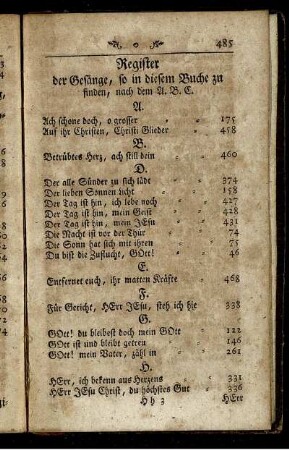 o 485
Register
der Gesänge, so in diesem Buche zu
finden, nach dem A. B. C.
A.
Ach schone doch, o grosser 175
Auf ihr Christen, Christi Glieder 458
B.
Betrübtes Herz, ach still dein 460
D.
Der alle Sünder zu sich lädt 374
Der lieben Sonnen Licht 158
Der Tag ist hin, ich lebe noch 427
Der Tag ist hin, mein Geist 428
Der Tag ist hin, mein JEsu 431
Die Nacht ist vor der Thür 74
Die Sonn hat sich mit ihren 75
Du bist die Zuflucht, GOtt! 46
E.
Entfernet euch, ihr matten Kräfte 468
F.
Für Gericht, HErr JEsu, steh ich hie 338
G.
GOtt! du bleibest doch mein GOtt 122
GOtt ist und bleibt getreu 146
GOtt! mein Vater, zähl in 261
H.
HErr, ich bekenn aus Herzens 331
HErr JEsu Christ, du höchstes Gut 336
Hh 3 HErr